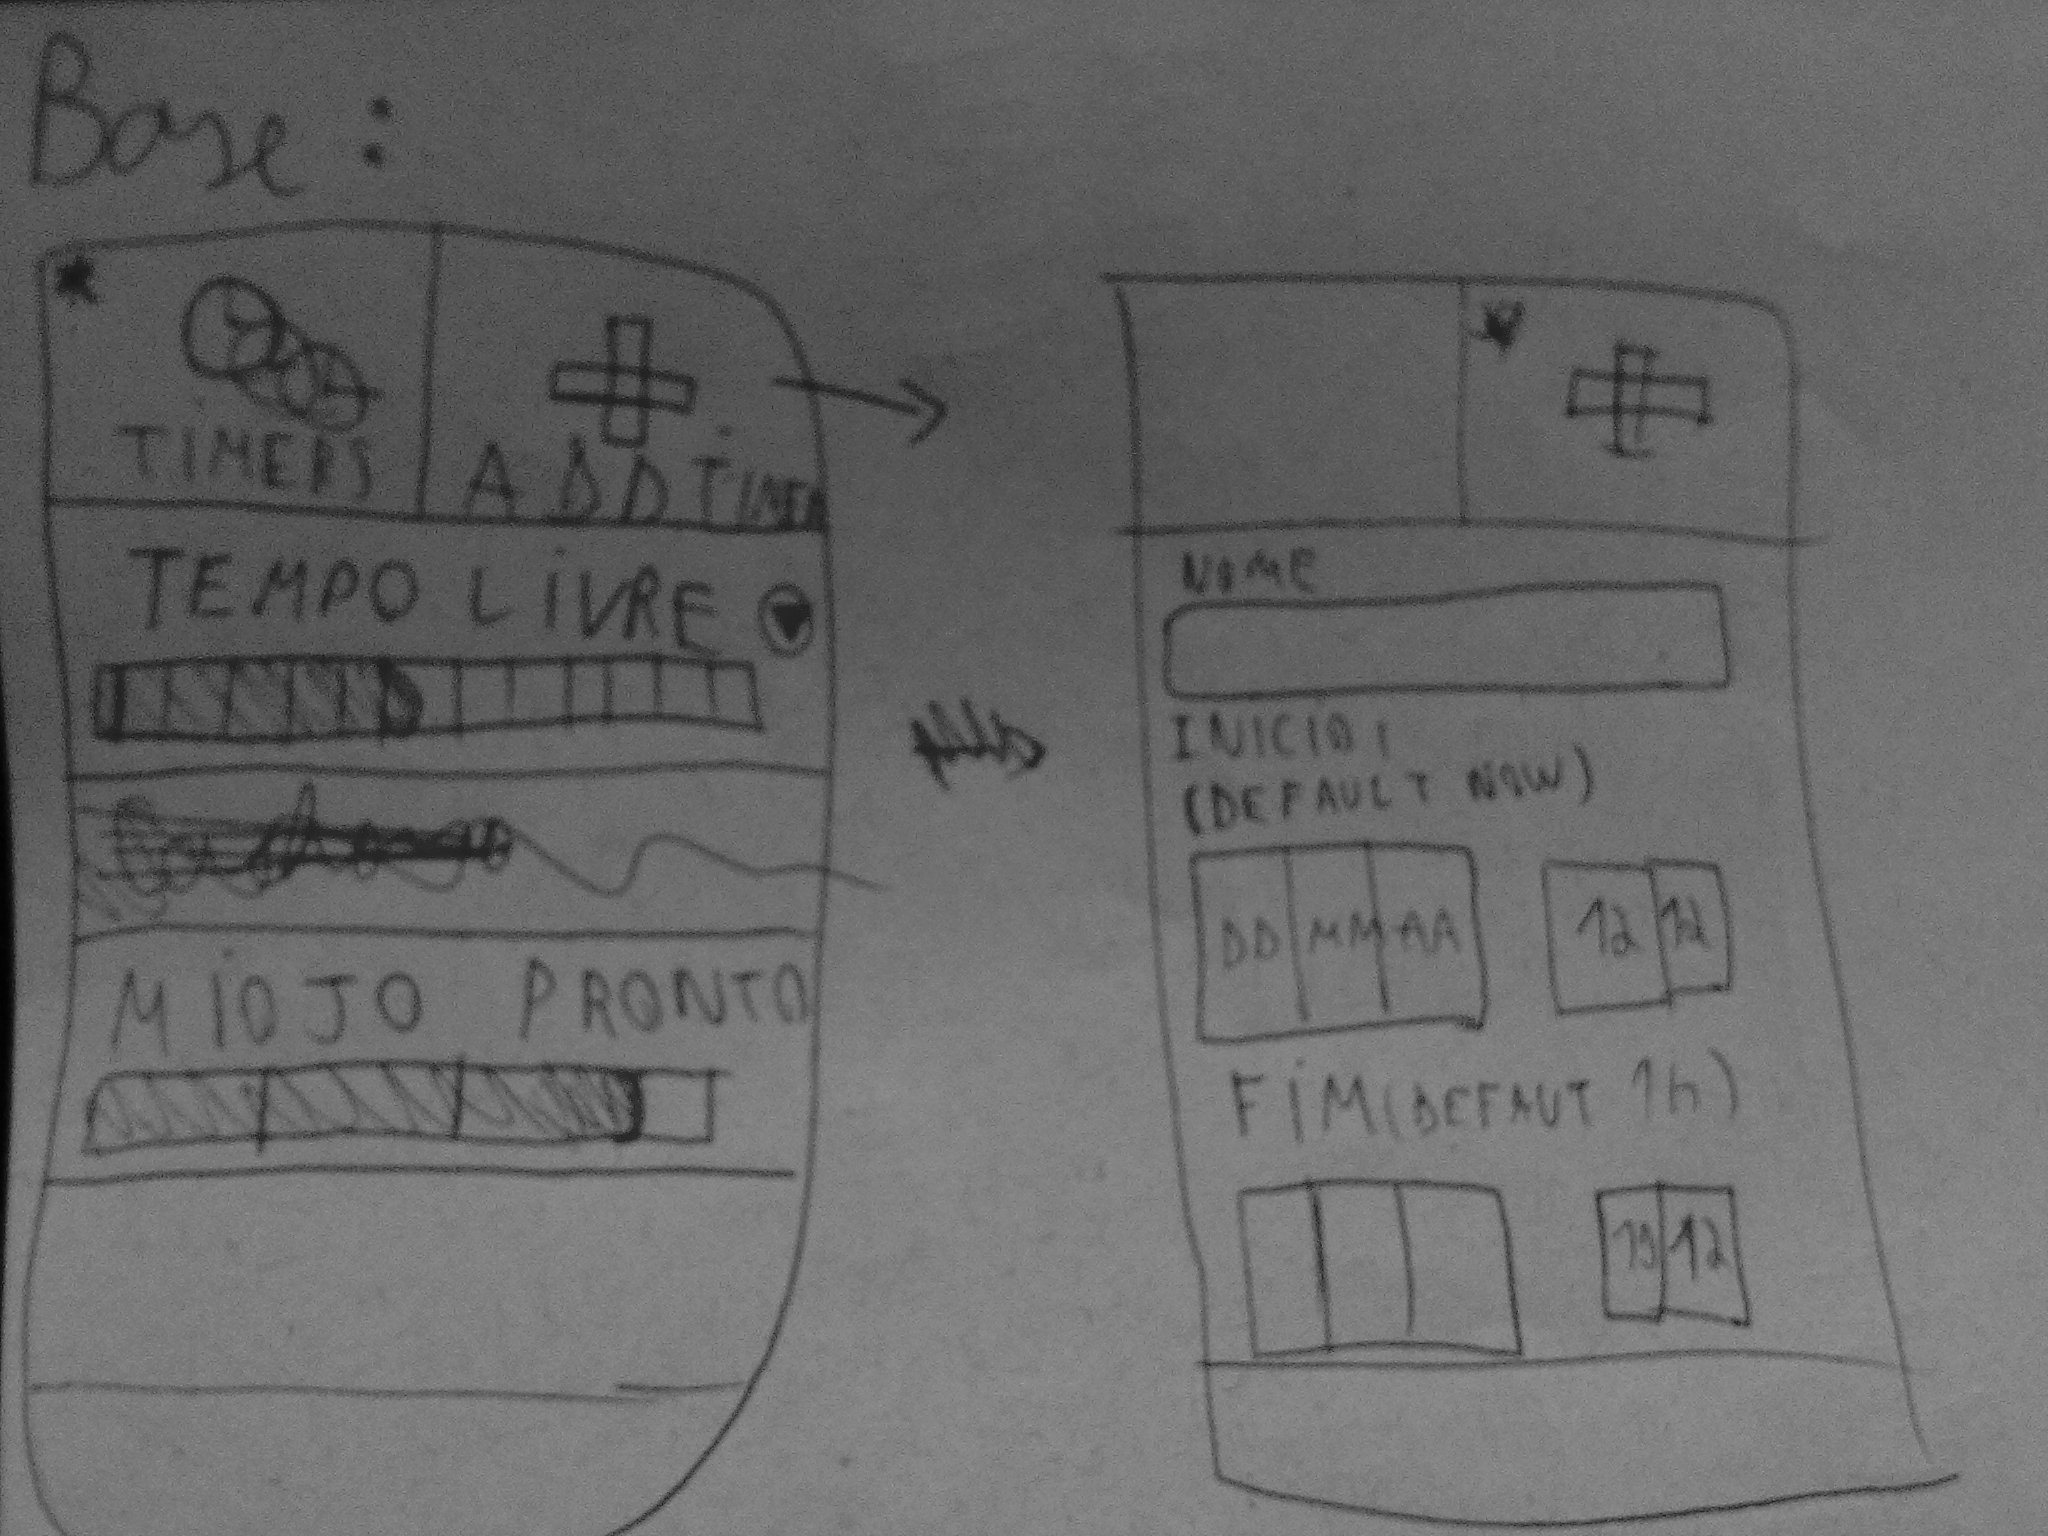 Base :
TIMERS
ADD TIMER
TEMPO LIVRE
MIOJO PRONTO
NOME
INICIO:
(DEFAULT NOW)
DD MM AA 12 12
FIM (DEFAUT 1h)
12